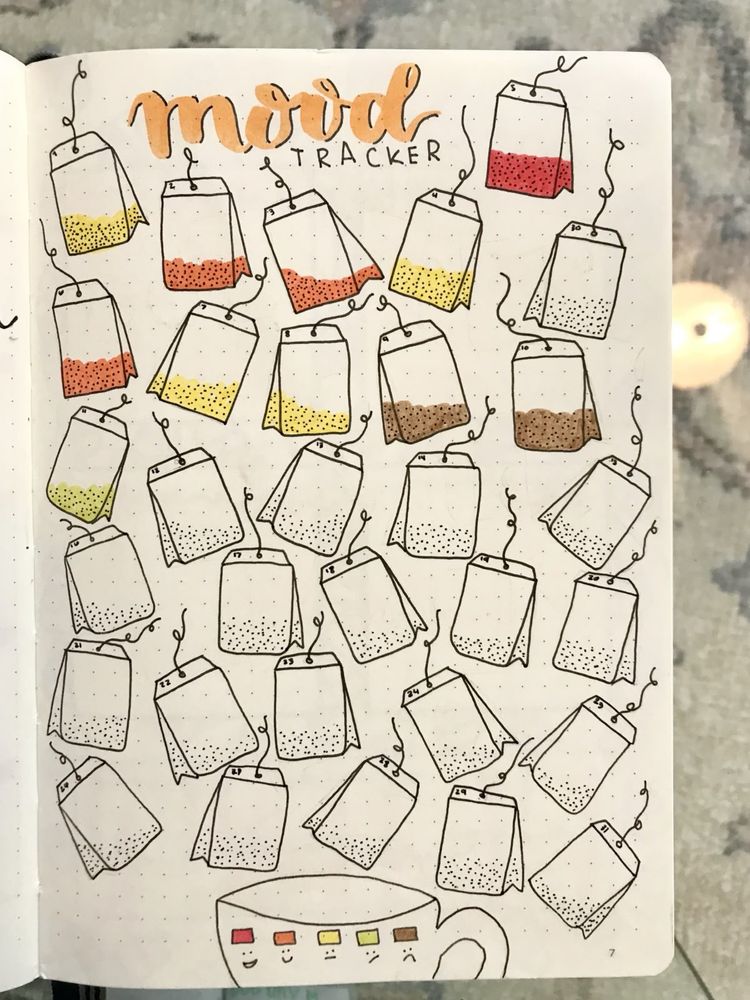 mood
TRACKER
1
2
3
4
5
30
6
7
8
9
10
11
12
13
14
15
16
17
18
19
20
21
22
23
24
25
26
27
28
29
31
7